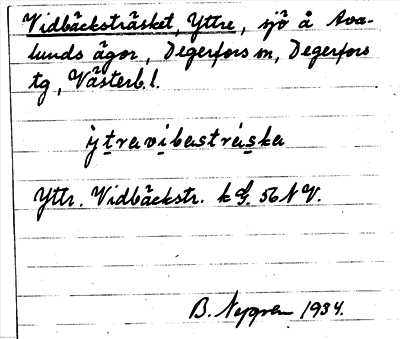 Vidbäcksträsket, Yttre, sjö å Ava-
lunds ägor, Degerfors sn, Degerfors
tg, Västerb. l.
ỳtravibastráska
Yttr. Vidbäckstr. k G. 56 N V.
B. Nygren 1934.